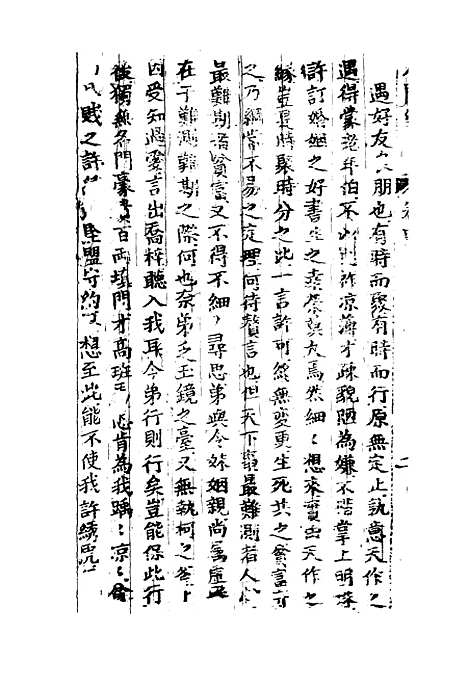 遇好友良朋也有時而聚有時而行原無定止孰意天作之
遇得蒙老年伯不以祚凉薄才疎貌陋為嫌不惜掌上明珠
許訂婚姻之好書生之素懷與友焉然細〻想來實由天作之
緣豈是時聚時分之此一言許可終無變更生死共之貧富
之乃綱常不易之定理何待贅言也但天下最難測者人心
最難期者貧富又不得不細〻尋思弟與令妹姻親尚爲虛
在于難測難期之際何也奈弟乏玉鏡之臺又無執柯之斧
因受知過愛言出喬梓聽入我耳今弟行則行矣豈能保此行
後獨無名門豪貴百兩填門才高班 心肯為我踽〻凉〻
貧賤之許 堅盟守約 想至此能不使我許綉